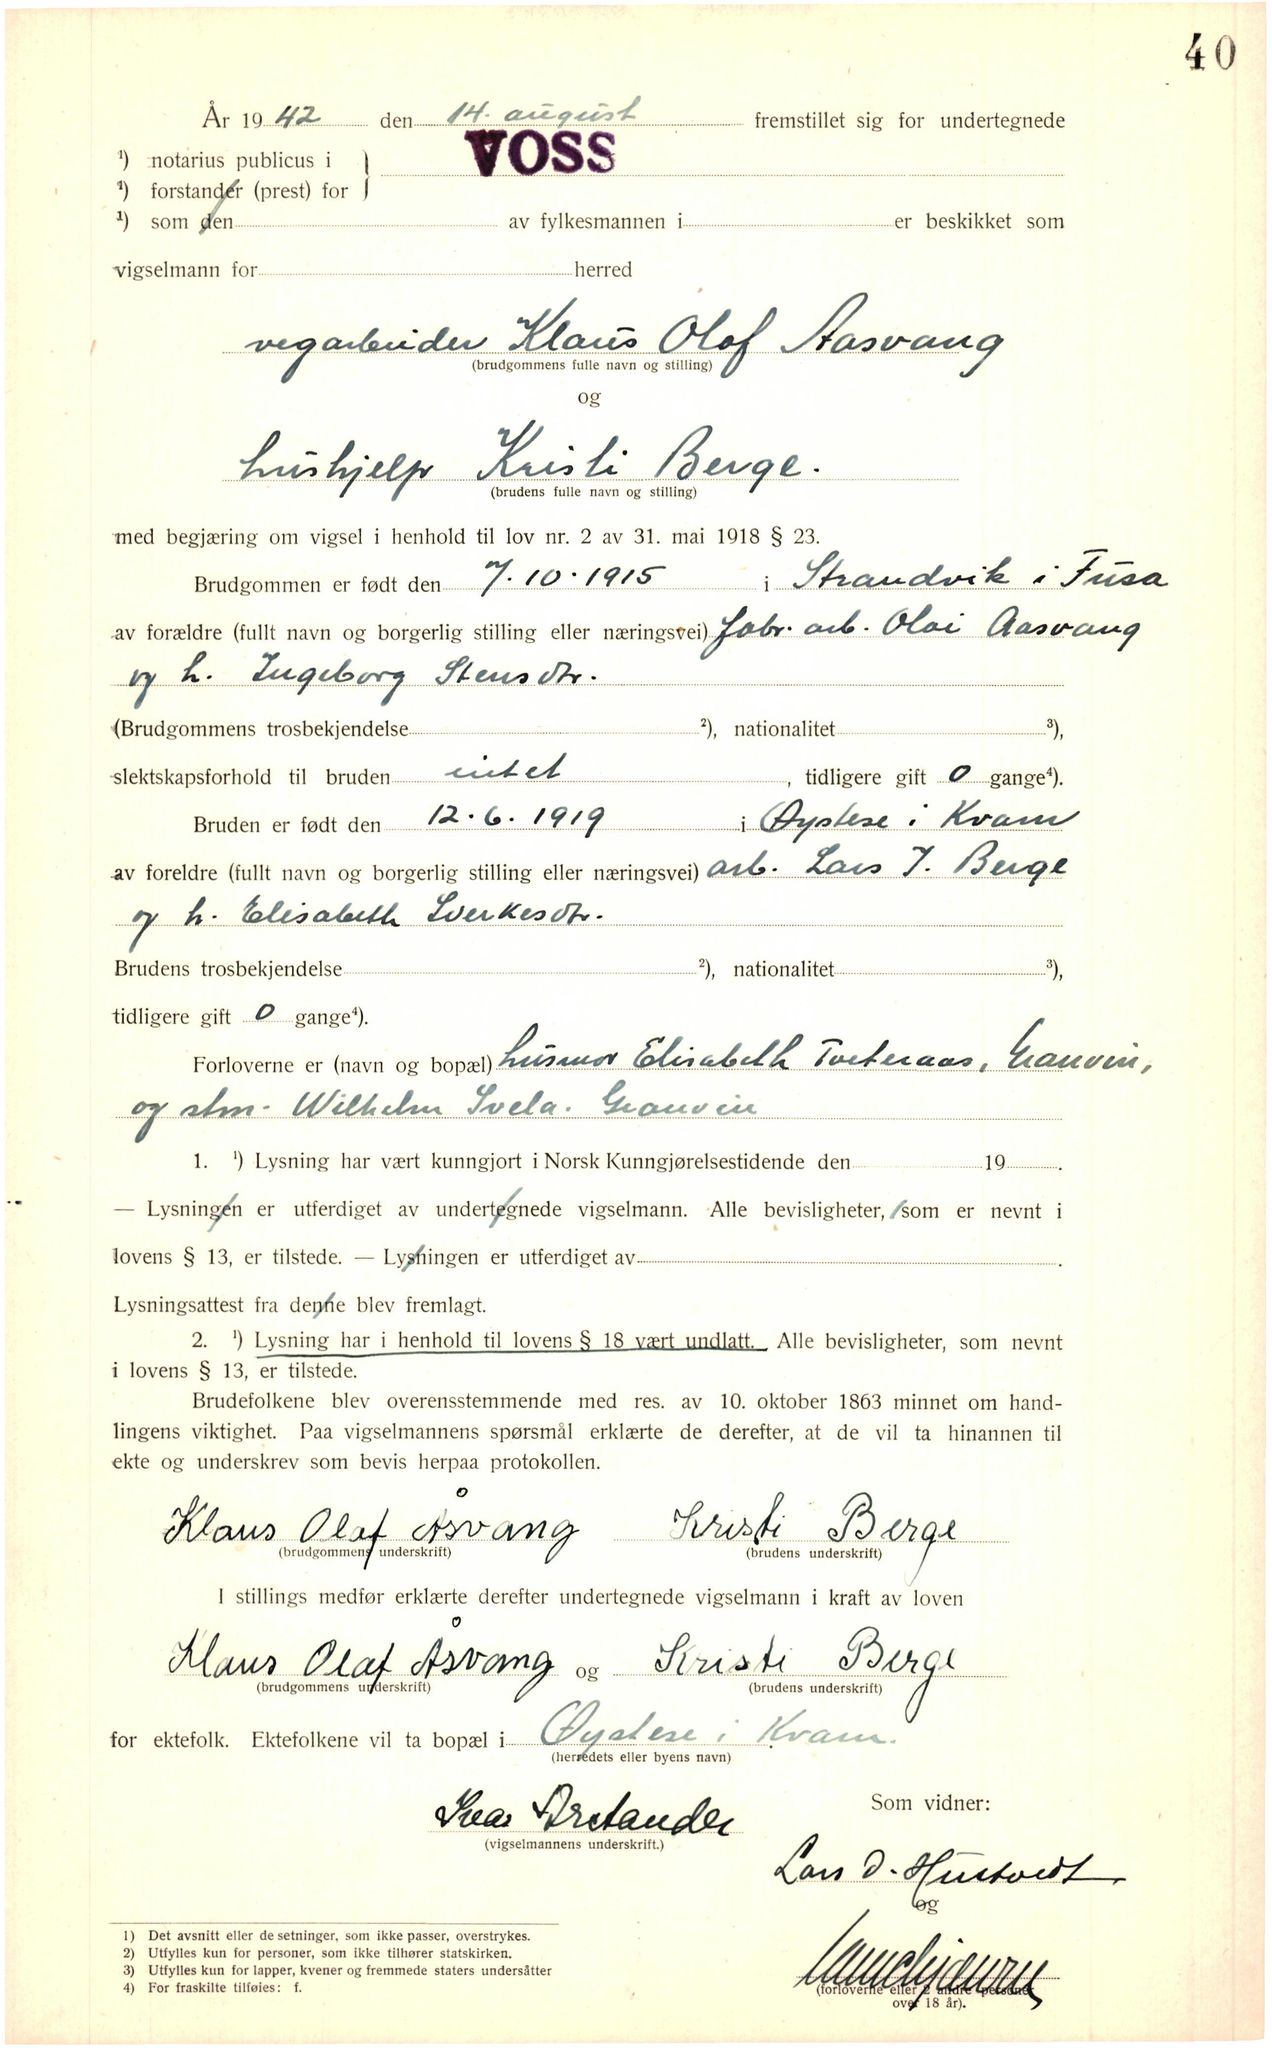 40
År 1942 den 14. august fremstillet sig for undertegnede
¹) notarius publicus i } VOSS
¹) forstander (prest) for
¹) som den av fylkesmannen i er beskikket som
vigselmann for herred
vegarbeider Klaus Olaf Aasvang
(brudgommens fulle navn og stilling)
og
hushjelp Kristi Berge.
(brudens fulle navn og stilling)
med begjæring om vigsel i henhold til lov nr. 2 av 31. mai 1918 § 23.
Brudgommen er født den 7.10.1915 i Strandvik i Fusa
av forældre (fullt navn og borgerlig stilling eller næringsvei) fabr. arb. Olai Aasvang
og h. Ingeborg Stensdtr.
(Brudgommens trosbekjendelse ²), nationalitet ³),
slektskapsforhold til bruden intet , tidligere gift 0 gange⁴).
Bruden er født den 12.6.1919 i Øystese i Kvam
av foreldre (fullt navn og borgerlig stilling eller næringsvei) arb. Lars J. Berge
og h. Elisabeth Sverkesdtr.
Brudens trosbekjendelse ²), nationalitet ³),
tidligere gift 0 gange⁴).
Forloverne er (navn og bopæl) husmor Elisabeth Tveteraas, Granvin,
og stm. Wilhelm Svela. Granvin
1. ¹) Lysning har vært kunngjort i Norsk Kunngjørelsestidende den 19 .
— Lysningen er utferdiget av undertegnede vigselmann. Alle bevisligheter, som er nevnt i
lovens § 13, er tilstede. — Lysningen er utferdiget av .
Lysningsattest fra denne blev fremlagt.
2. ¹) Lysning har i henhold til lovens § 18 vært undlatt. Alle bevisligheter, som nevnt
i lovens § 13, er tilstede.
Brudefolkene blev overensstemmende med res. av 10. oktober 1863 minnet om hand-
lingens viktighet. Paa vigselmannens spørsmål erklærte de derefter, at de vil ta hinannen til
ekte og underskrev som bevis herpaa protokollen.
Klaus Olaf Åsvang Kristi Berge
(brudgommens underskrift) (brudens underskrift)
I stillings medfør erklærte derefter undertegnede vigselmann i kraft av loven
Klaus Olaf Åsvang og Kristi Berge
(brudgommens underskrift) (brudens underskrift)
for ektefolk. Ektefolkene vil ta bopæl i Øystese i Kvam.
(herredets eller byens navn)
Som vidner:
Ivar Arstander
(vigselmannens underskrift.)
Lars O. Hustvedt
og
(forloverne eller 2 andre personer
over 18 år).
1) Det avsnitt eller de setninger, som ikke passer, overstrykes.
2) Utfylles kun for personer, som ikke tilhører statskirken.
3) Utfylles kun for lapper, kvener og fremmede staters undersåtter
4) For fraskilte tilføies: f.